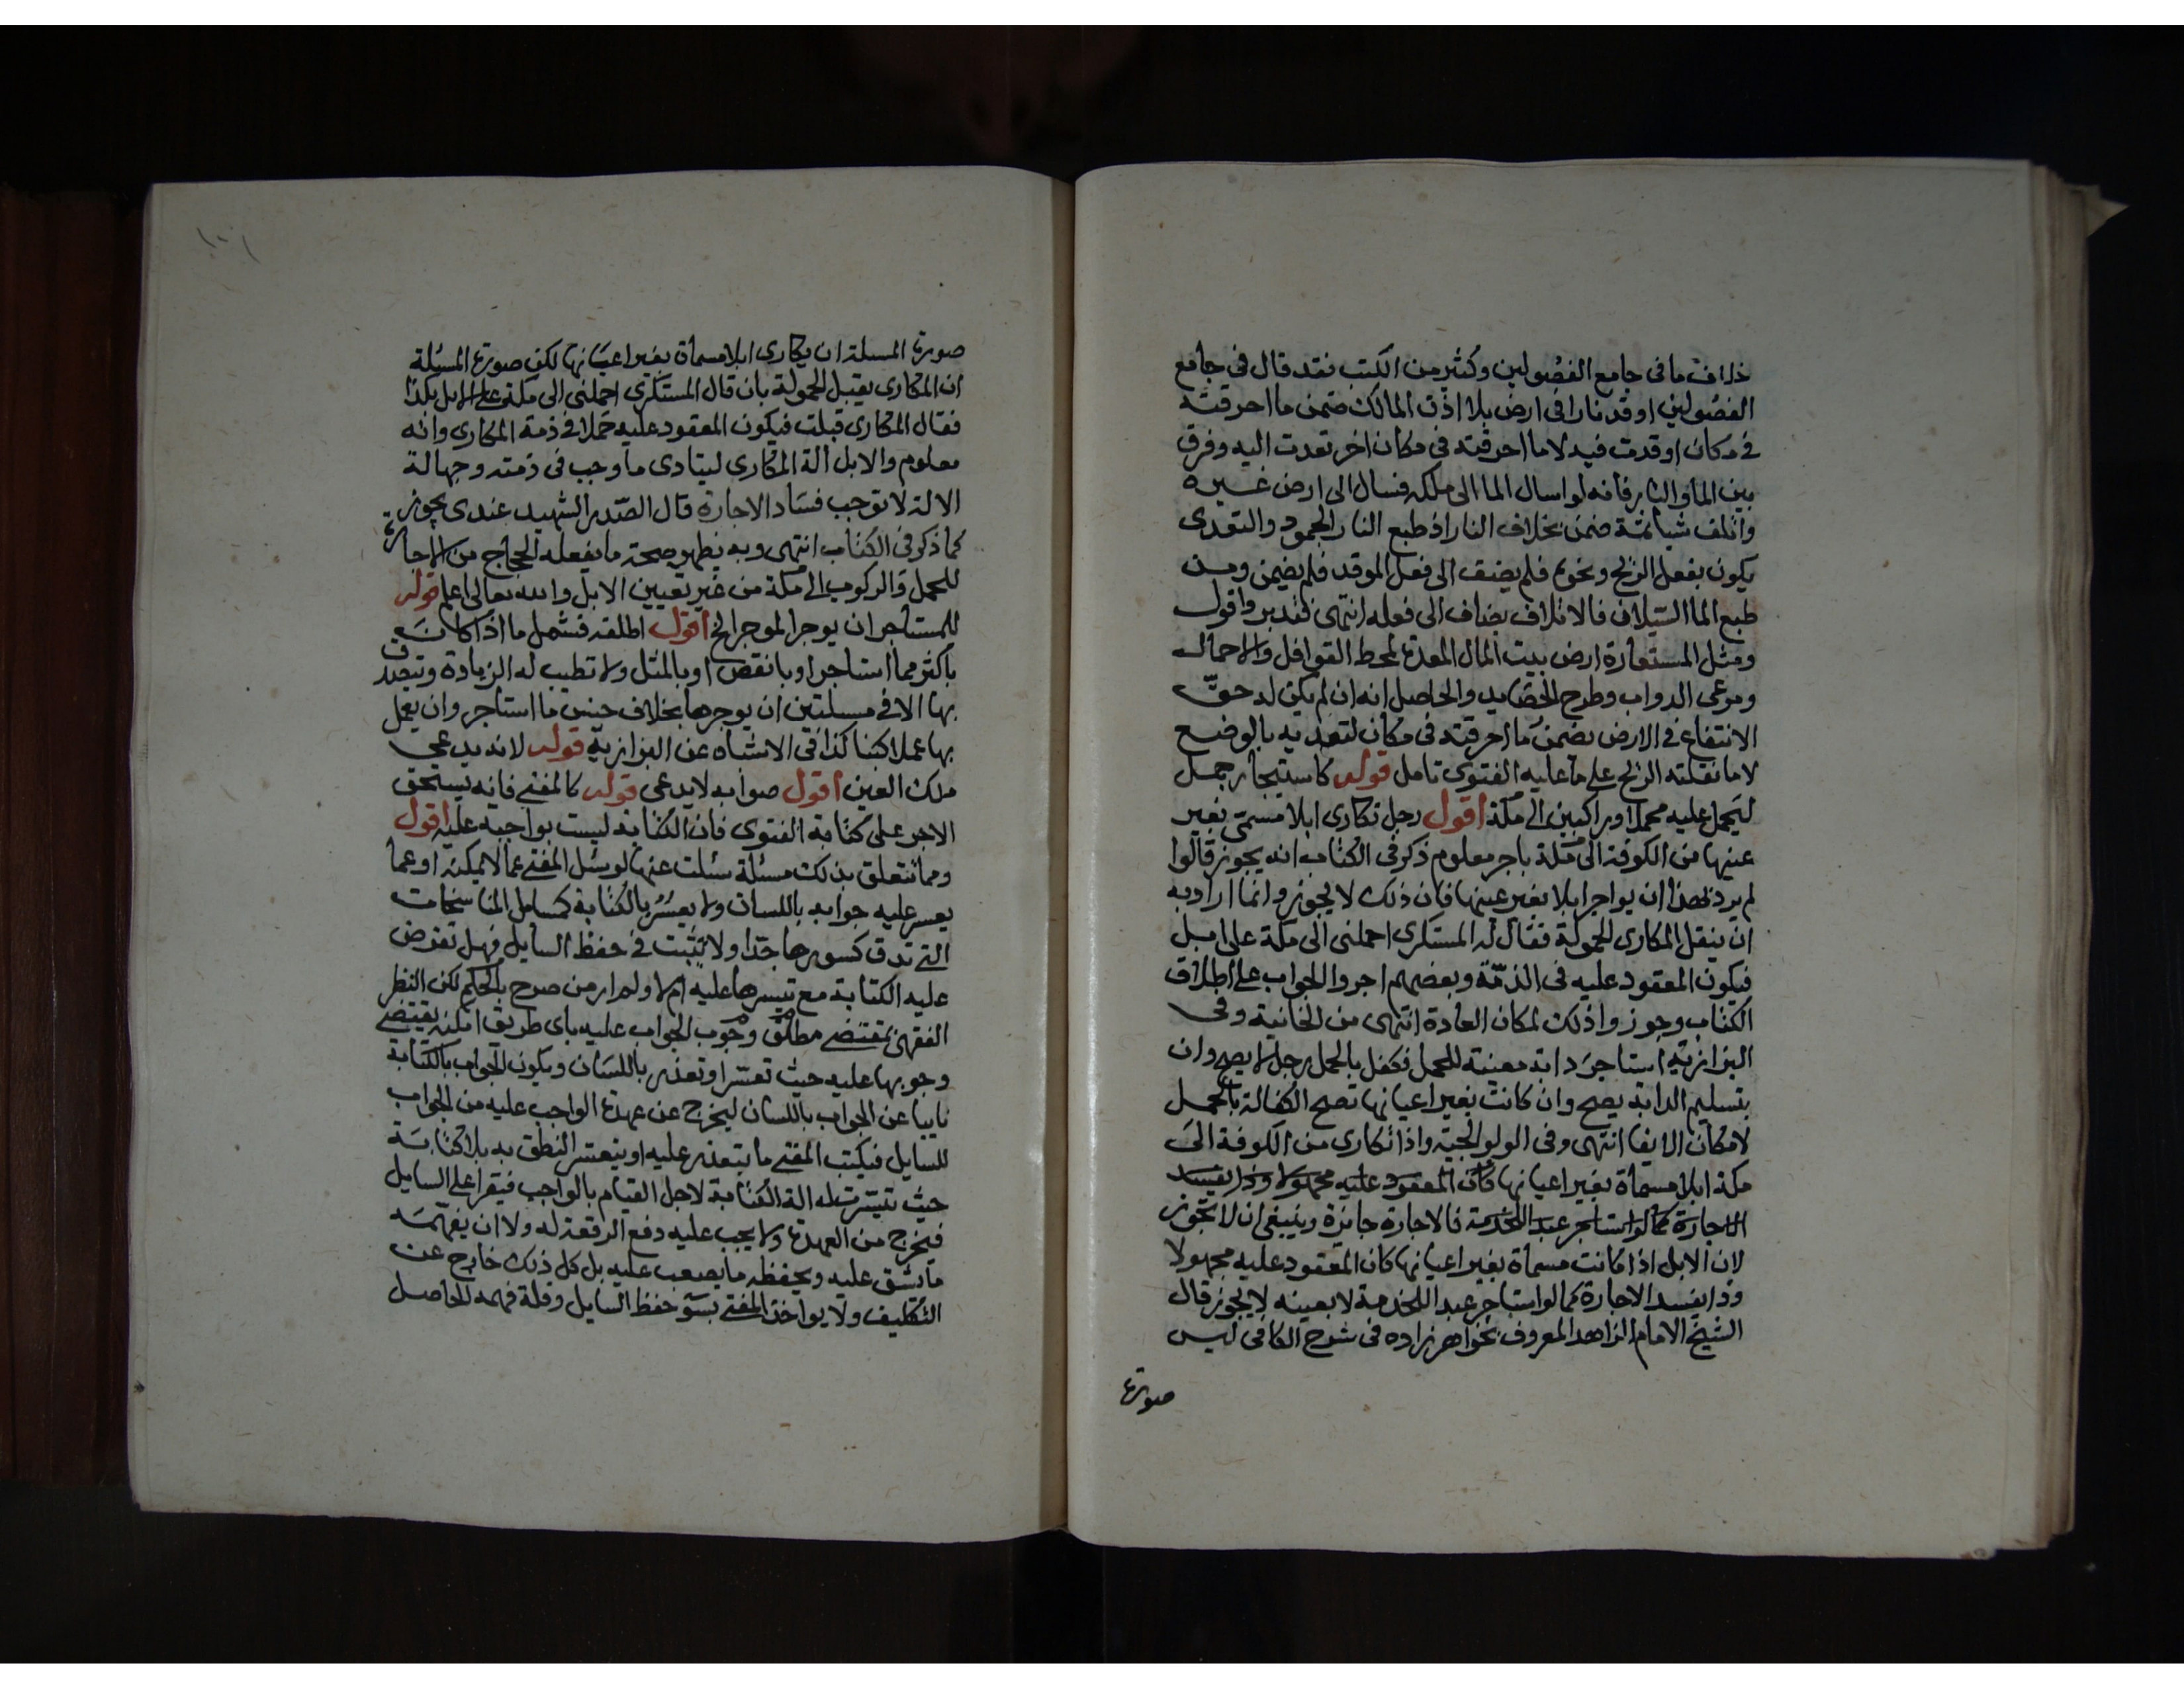 خلاف ما في جامع الفصولين وكثير من الكتب فقد قال في جامع
الفصولين اوقد نارا في ارض بلا اذن المالك ضمن ما احرقته
في مكان اوقدت فيه لا ما احرقته في مكان اخر تعدت اليه وفرق
بين الما والنار فانه لو اسال الما الى ملكه فسال الى ارض غيره
واتلف شيا ثمة ضمن بخلاف النار اذ طبع النار الجمود والتعدى
يكون بفعل الريح ونحوه فلم يضف الى فعل الموقد فلم يضمن ومن
طبع الما السيلان فالاتلاف يضاف الى فعله انتهى فتدبر واقول
ومثل المستعارة ارض بيت المال المعدة لمحط القوافل والاحمال
ومرعى الدواب وطرح الحصايد والحاصل انه ان لم يكن له حق
الانتفاع في الارض يضمن ما احرقته في مكان لتعديه بالوضع
لا ما نقلته الريح على ما عليه الفتوى تامل قوله كاستيجار جمل
ليحمل عليه محملا وراكبين الى مكة اقول رجل تكارى ابلا مسمى بغير
عينها من الكوفة الى مكة باجر معلوم ذكر في الكتاب انه يجوز قالوا
لم يرد بهذا ان يواجر ابلا بغير عينها فان ذلك لا يجوز وانما اراد به
ان يتقبل المكارى الحمولة فقال له المستكرى احملنى الى مكة على ابل
فيكون المعقود عليه في الذمة وبعضهم اجروا الجواب على اطلاق
الكتاب وجوزوا ذلك لمكان العادة انتهى من الخانية وفى
البزازية استاجر دابة معينة للحمل فكفل بالحمل رجل لا يصح وان
بتسليم الدابة يصح وان كانت بغير اعيانها تصح الكفالة بالحمل
لامكان الايفا انتهى وفى الولوالجية واذا تكارى من الكوفة الى
مكة ابلا مسماة بغير اعيانها كان المعقود عليه مجهولا وذا يفسد
الاجارة كما لو استاجر عبد اللخدمة فالاجارة جايزة وينبغى ان لا تجوز
لان الابل اذا كانت مسماة بغير اعيانها كان المعقود عليه مجهولا
وذا يفسد الاجارة كما لو استاجر عبد اللخدمة لا بعينه لا يجوز قال
الشيخ الامام الزاهد المعروف بخواهر زاده فى شرح الكافى ليس
صورة
١٠١
صورة المسلة ان يكارى ابلا مسماة بغير اعيانها لكن صورة المسئلة
ان المكارى يقبل الحمولة بان قال المستكرى احملنى الى مكة على الابل بكذا
فقال المكارى قبلت فيكون المعقود عليه حملا في ذمة المكارى وانه
معلوم والابل آلة المكارى ليتادى ما وجب فى ذمته وجهالة
الالة لا توجب فساد الاجارة قال الصدر الشهيد عندى يجوز
كما ذكر فى الكتاب انتهى وبه يظهر صحة ما يفعله الحجاج من الاجارة
للحمل والركوب الى مكة من غير تعيين الابل والله تعالى اعلم قوله
للمستاجر ان يوجر الموجر الخ اقول اطلقه فشمل ما اذا كان
باكثر مما استاجر او بانقص او بالمثل ولا تطيب له الزيادة ويتصدق
بها الا في مسلتين ان يوجرها بخلاف جنس ما استاجر وان يعمل
بها عملا كبنا كذا في الاشباه عن البزازية قوله لانه يدعى
ملك العين اقول صوابه لا يدعى قوله كالمفتى فانه يستحق
الاجر على كتابة الفتوى فان الكتابة ليست بواجبه عليه اقول
ومما يتعلق بذلك مسئلة سئلت عنها لو سئل المفتى عما لا يمكنه او عما
يعسر عليه جوابه باللسان ولا يعسر بالكتابة كمسايل المناسخات
التى تدق كسورها جدا ولا تثبت فى حفظ السايل فهل تفرض
عليه الكتابة مع تيسرها عليه ام لا ولم ار من صرح بالحكم لكن النظر
الفقهى بمقتضى مطلق وجوب الجواب عليه باى طريق امكنه يقتضى
وجوبها عليه حيث تعسر او تعذر باللسان ويكون الجواب بالكتابة
نايبا عن الجواب باللسان ليخرج عن عهدة الواجب عليه من الجواب
للسايل فيكتب المفتى ما يتعذر عليه او يتعسر النطق به بلا كتابة
حيث تيسرت له آلة الكتابة لاجل القيام بالواجب فيقرا على السايل
فيخرج من العهدة ولا يجب عليه دفع الرقعة له ولا ان يفهمه
ما يشق عليه ويحفظه ما يصعب عليه بل كل ذلك خارج عن
التكليف ولا يواخذ المفتى بسو حفظ السايل وقلة فهمه للحاصل